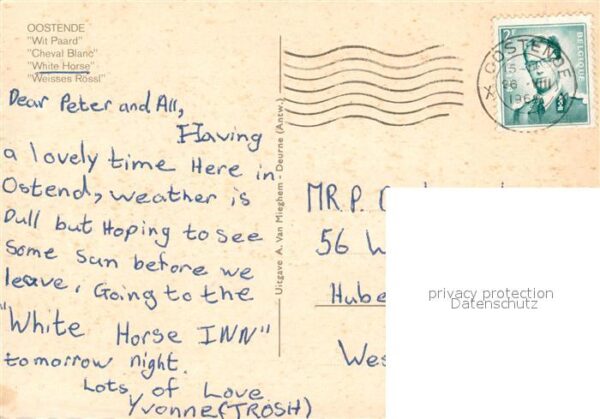 OOSTENDE
"Wit Paard"
"Cheval Blanc"
"White Horse"
"Weisses Rössl"
Dear Peter and All,
Having
a lovely time Here in
Ostend, weather is
Dull but Hoping to see
some sun before we
leave, Going to the
"White Horse INN"
tomorrow night.
Lots of Love
Yvonne(TROSH)
Uitgave A. Van Mieghem - Deurne (Antw.)
2F
BELGIQUE
OOSTENDE
MR. P.
56 W
Hube
Wes
privacy protection
Datenschutz